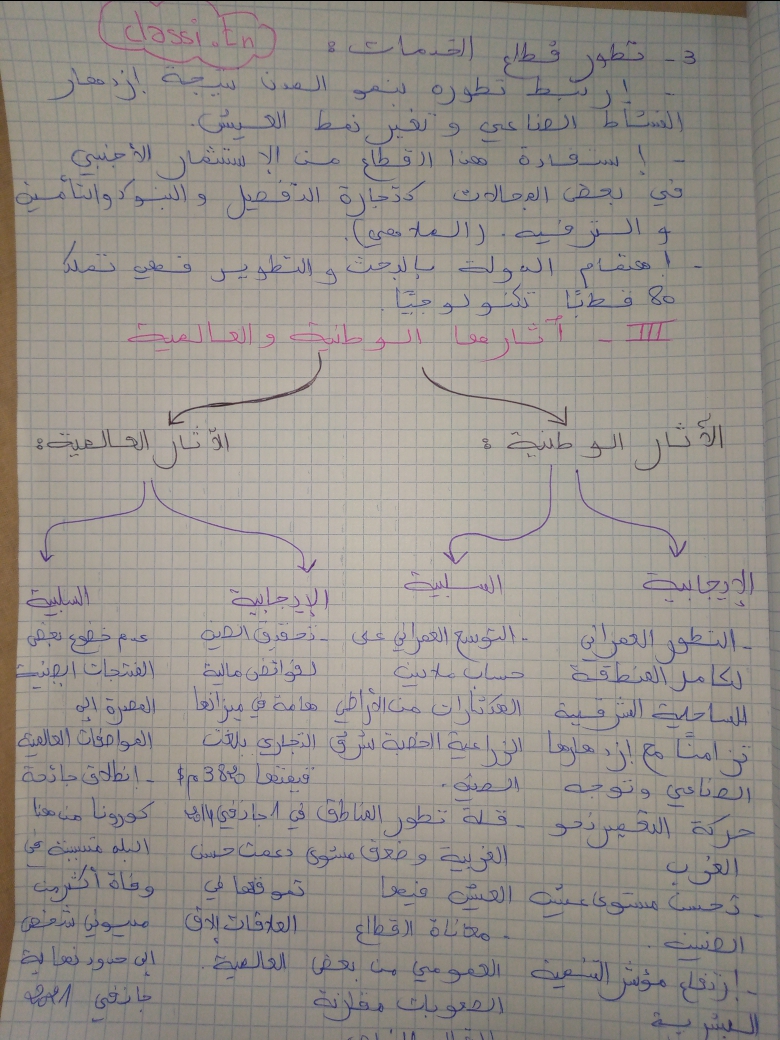 classi.tn
3 - تطور قطاع الخدمات :
- إرتبط تطوره بنمو المدن نتيجة إزدهار
النشاط الصناعي و تغير نمط العيش.
- إستفادة هذا القطاع من الإستثمار الأجنبي
في بعض المجالات كتجارة التفصيل و البنوك والتأمين
و الترفيه. (الملاهي).
- إهتمام الدولة بالبحث و التطوير فهي تملك
80 قطبًا تكنولوجيًا.
III - آثارها الوطنية والعالمية
الآثار الوطنية :
الآثار العالمية :
الإيجابية
- التطور العمراني
لكامل المنطقة
الساحلية الشرقية
تزامنًا مع إزدهارها
الصناعي وتوجه
حركة التعمير نحو
الغرب
- تحسن مستوى عيش
الصينين.
- إرتفاع مؤشر التنمية
البشرية
السلبية
- التوسع العمراني على
حساب ملايين
الهكتارات من الأراضي
الزراعية الخصبة شرقي
الصين.
- قلة تطور المناطق
الغربية و ضعف مستوى
العيش فيها
- معاناة القطاع
العمومي من بعض
الصعوبات مقارنة
الإيجابية
- تحقيق الصين
لفوائض مالية
هامة في ميزانها
التجاري بلغت
قيمتها 382 م$
في 1 جانفي 2014
دعمت حسن
تموقعها في
العلاقات
العالمية.
السلبية
عدم خضوع بعض
المنتجات الصينية
المصدرة إلى
المواصفات العالمية
- إنطلاق جائحة
كورونا من هذا
البلد متسببة في
وفاة أكثر من
مليوني شخص
إلى حدود نهاية
جانفي 2021